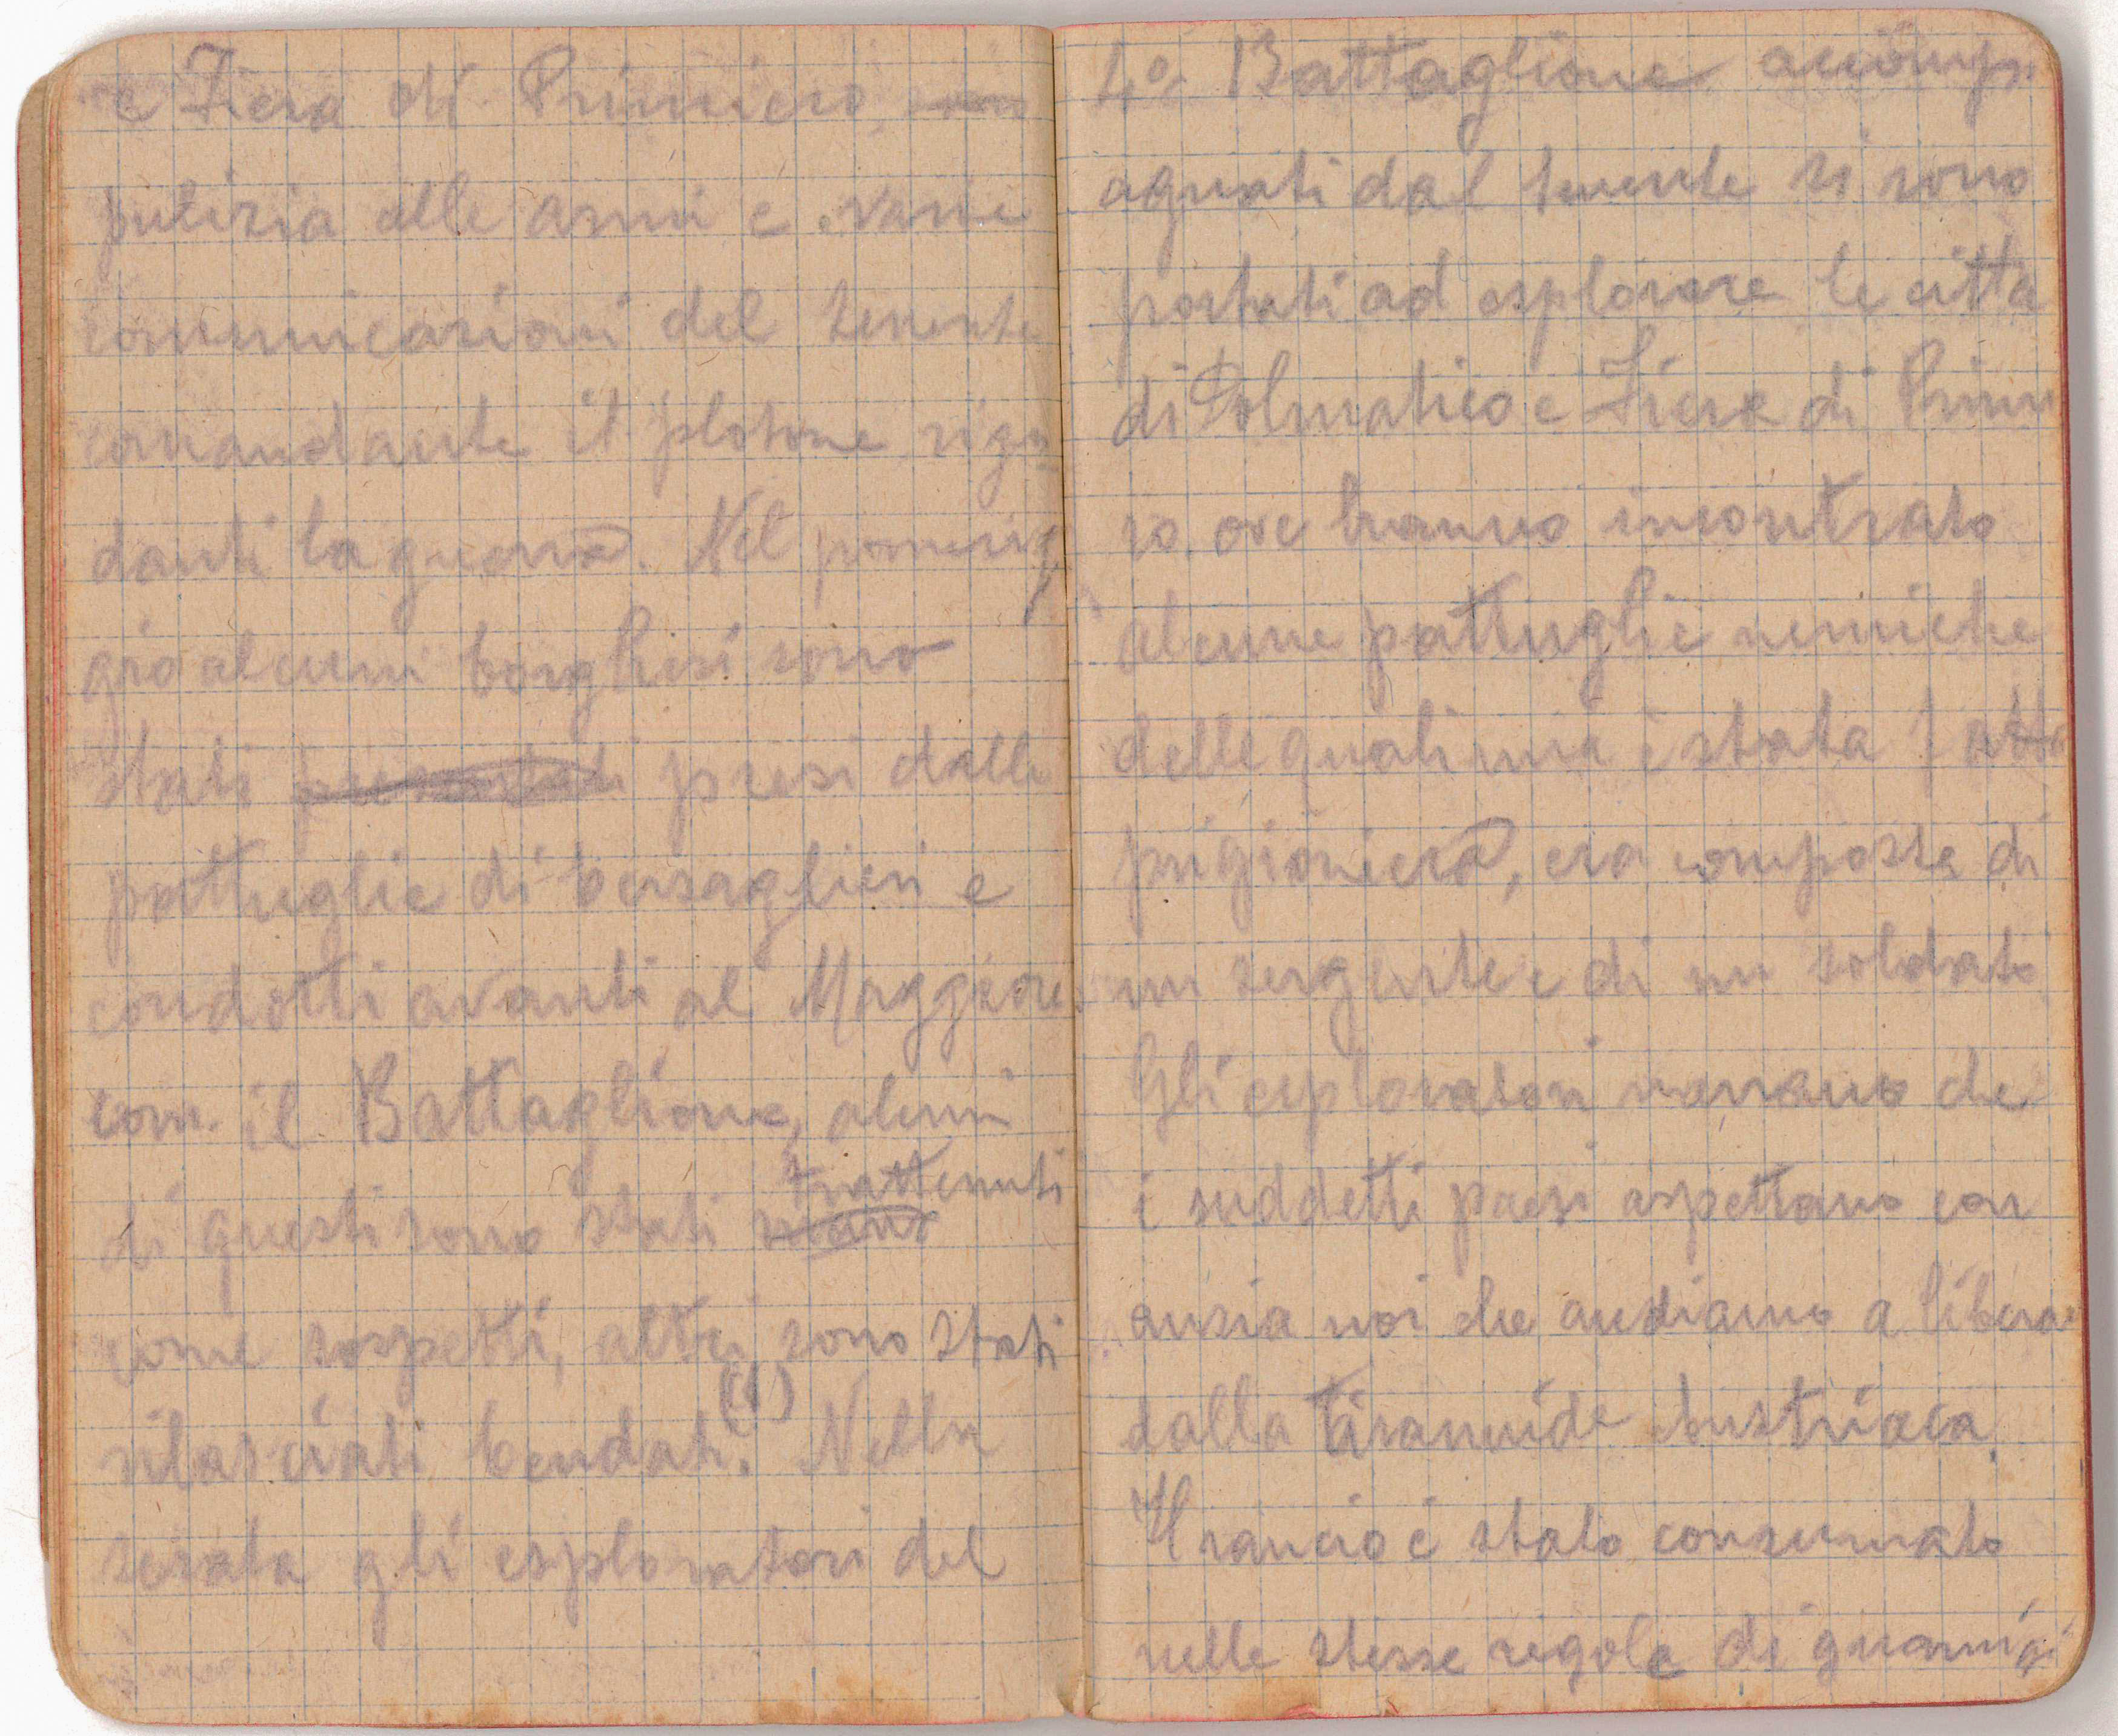 e Fiera di Primiero,
pulizia alle armi e varie
comunicazioni del tenente
comandante il plotone rigu
danti la guerra. Nel pomerig
gio alcuni borghesi sono
stati presentati presi dalle
pattuglie di bersaglieri e
condotti avanti al Maggiore
com. il Battaglione, alcuni
trattenuti
di questi sono stati
come sospetti, altri sono stati
(1)
rilasciati bendati. Nella
serata gli esploratori del
4º Battaglione accomp
agnati dal tenente si sono
portati ad esplorare le città
di Tolmatico e Fiera di Primie
ro, ove hanno incontrato
alcune pattuglie nemiche
delle quali una è stata fatta
prigioniera, era composta di
un sergente e di un soldato
Gli esploratori narrano che
i suddetti paesi aspettano con
ansia noi che andiamo a liberar
dalla tirannide Austriaca.
Il rancio è stato consumato
nelle stesse regole di guarnigi